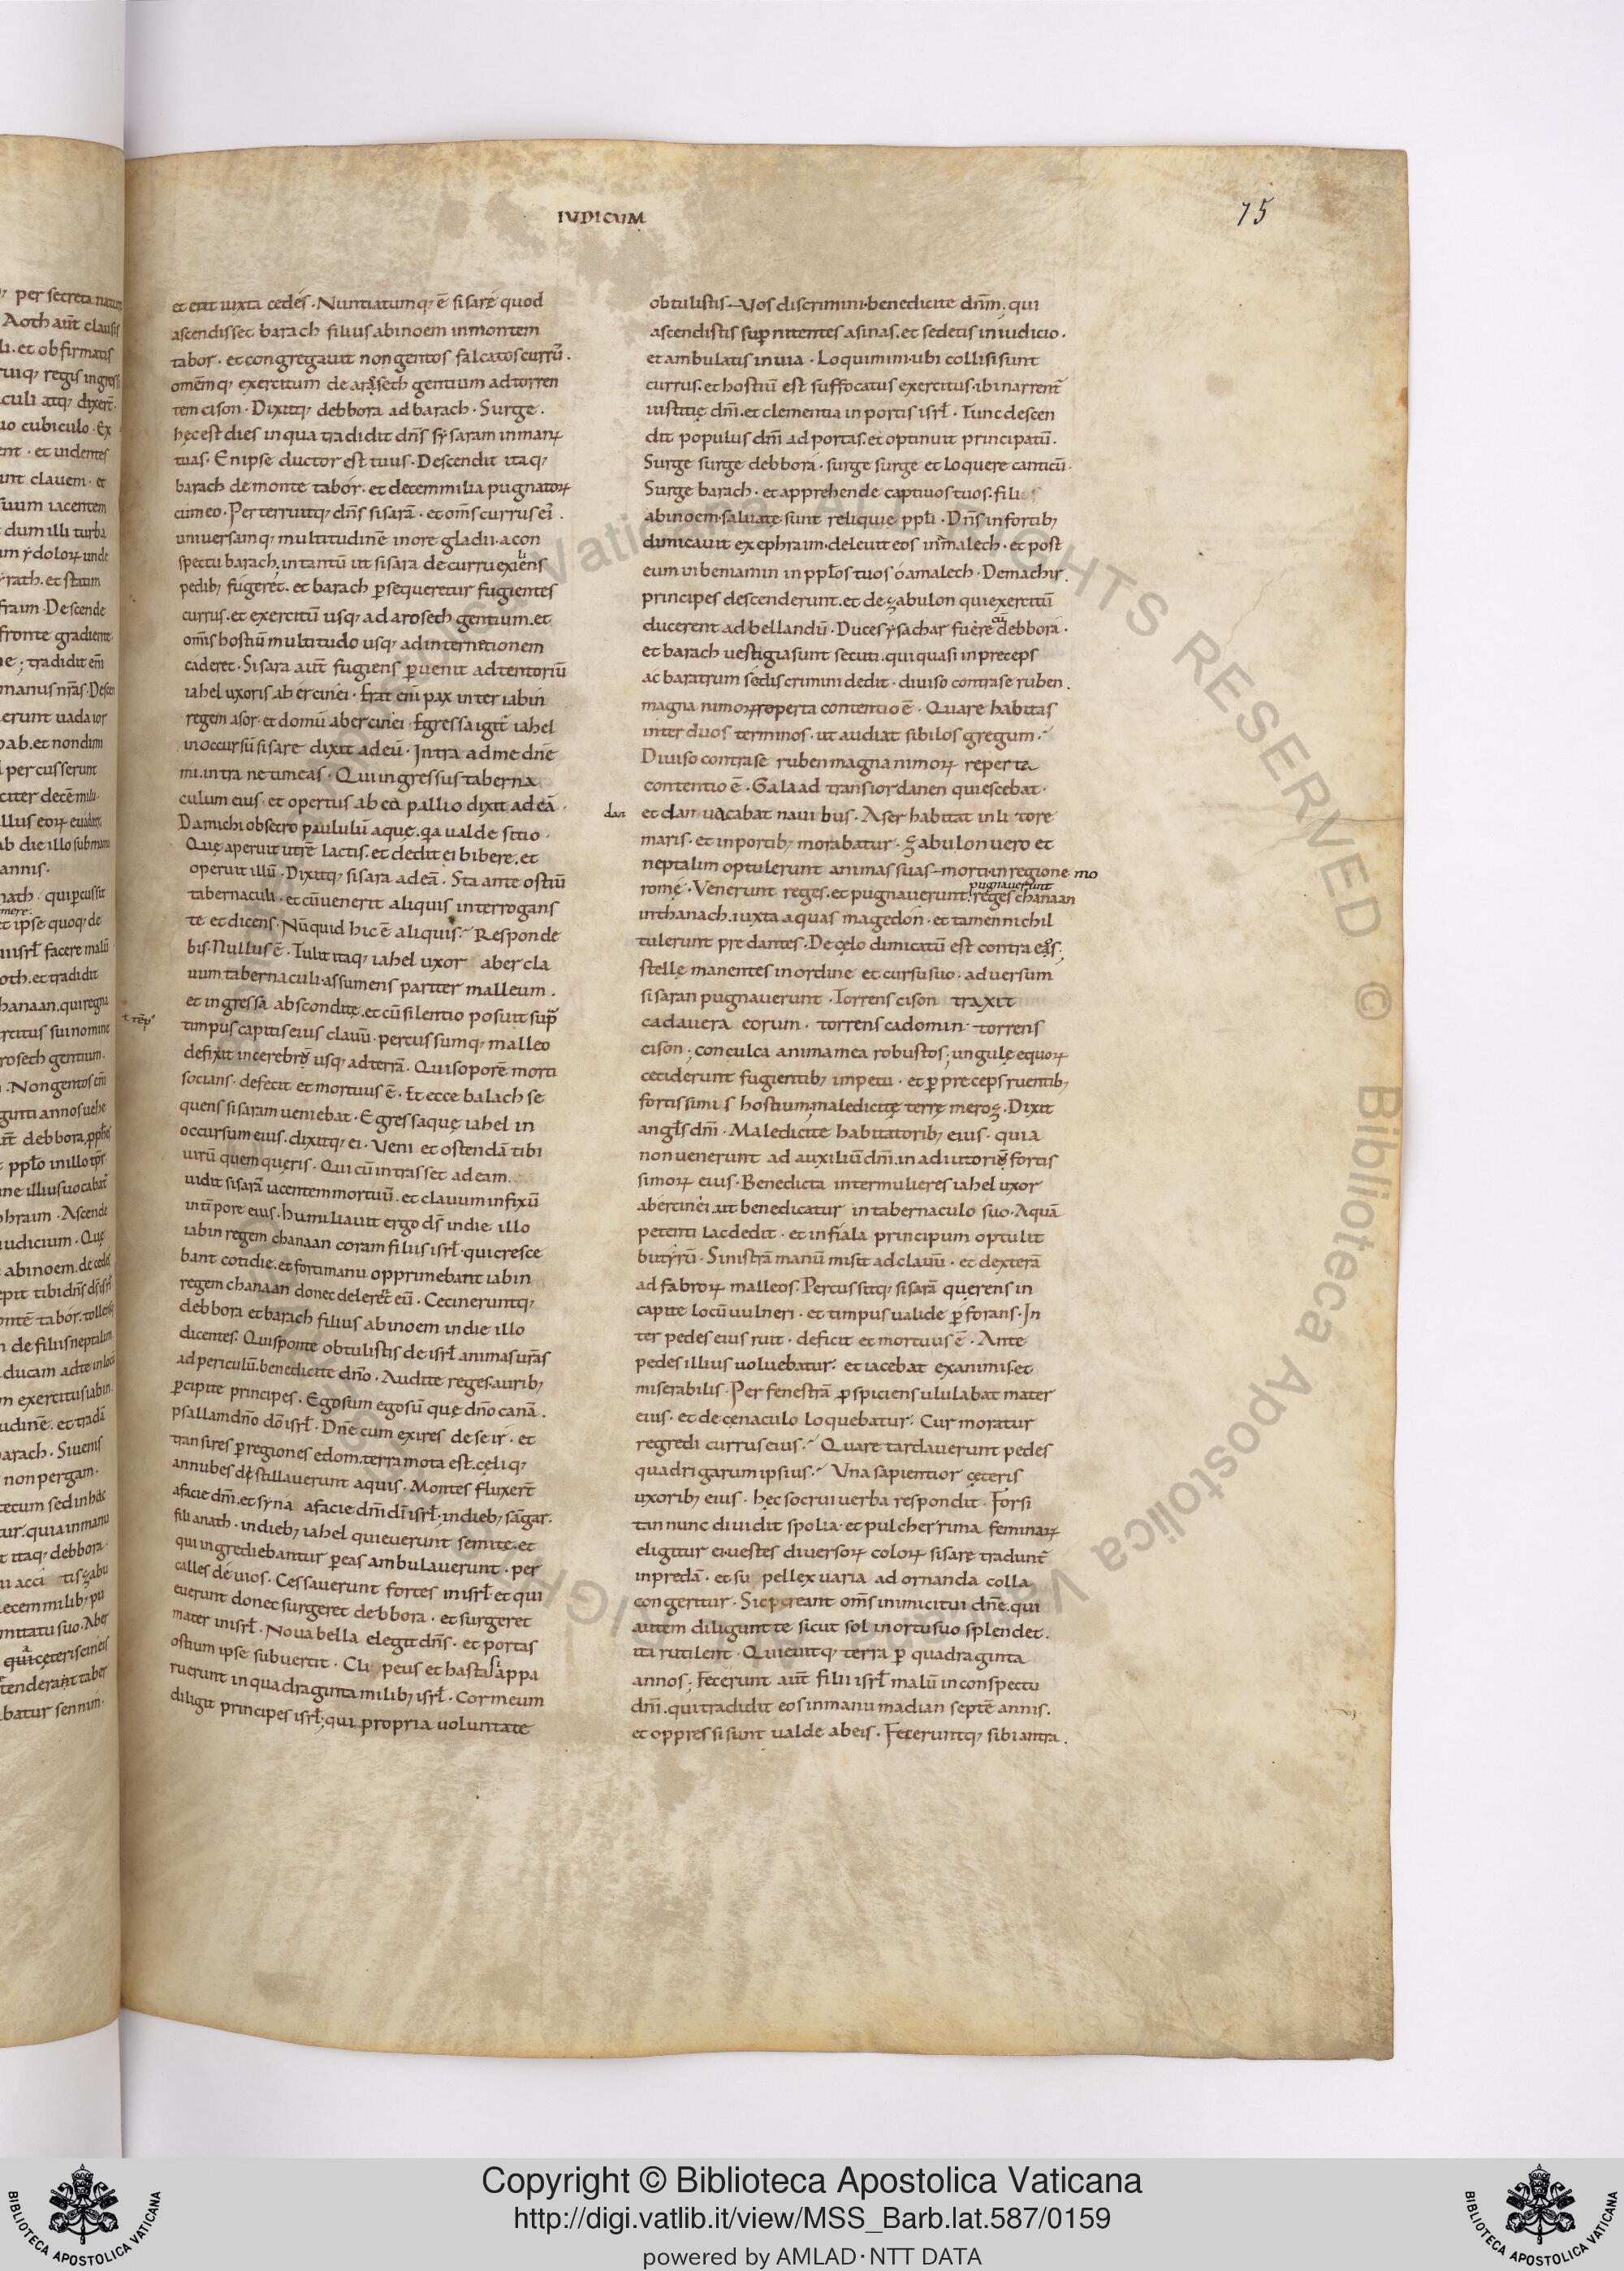 IUDICUM
75
et erat iuxta cedes · Nuntiatumq; ē sisarę quod
ascendisset barach filius abinoem inmontem
tabor · et congregavit nongentos falcatos currū ·
omēmq; exercitum de arosech gentium adtorren
tem cison · Dixitq; debbora ad barach · Surge ·
hęcest dies inqua tradidit dn̄s sysaram inmanꝝ
tuas · En ipse ductor est tuus · Descendit itaq;
barach de monte tabor · et decem milia pugnatoꝝ
cum eo · Perterruitq; dn̄s sisarā · et om̄s currus ei᾽ ·
universamq; multitudinē inore gladii · acon
spectu barach · intantū ut sisara de curru exiliens
pedib; fugeret · et barach ꝑsequeretur fugientes
currus · et exercitū usq; ad arosech gentium · et
om̄s hostiū multitudo usq; ad internetionem
caderet · Sisara aūt fugiens ꝑvenit ad tentoriū
iahel uxoris aber cinei · Erat enī pax inter iabin
regem asor · et domū aber cinei · Egressa igit᷑ iahel
inoccursū sisare dixit ad eū · Intra ad me dn̄e
mi · intra ne timeas · Qui ingressus taberna
culum eius · et opertus ab ea pallio dixit ad eā ·
Da michi obsecro paululū aque · qa valde sitio ·
Quę aperuit utrē lactis · et dedit ei bibere · et
operuit illū · Dixitq; sisara ad eā · Sta ante ostiū
tabernaculi · et cū venerit aliquis interrogans
te et dicens · Nūquid hic ē aliquis · Responde
bis · Nullus ē · Tulit itaq; iahel uxor aber cla
uum tabernaculi · assumens pariter malleum ·
et ingressa abscondite · et cū silentio posuit sup̄
timpus capitis eius clavū · percussumq; malleo
defixit in cerebrū usq; ad terrā · Qui soporē morti
socians · defecit et mortuus ē · Et ecce balach se
quens sisaram veniebat · Egressaque iahel in
occursum eius · dixitq; ei · Veni et ostendā tibi
virū quem queris · Qui cū intrasset ad eam
vidit sisarā iacentem mortuū · et clavum infixū
intīpore eius · humiliavit ergo ds̄ indie illo
iabin regem chanaan coram filiis isrł · qui cresce
bant cotidie · et forti manu opprimebant iabin
regem chanaan donec delerēt eū · Cecineruntq;
debbora et barach filius abinoem indie illo
dicentes · Qui sponte obtulistis de isrł animas vr̄as
ad periculū · benedicite dn̄o · Audite reges · aurib;
ꝑcipite principes · Ego sum ego sū quę dn̄o canā ·
psallam dn̄o dō isrł · Dn̄e cum exires de seir · et
transires ꝑ regiones edom · terra mota est · cęliq;
ac nubes distillaverunt aquis · Montes fluxerūt
a facie dn̄i · et syna a facie dn̄i dī isrł · indieb; sāgar ·
filii anath · indieb; iahel quieverunt semite · et
qui ingrediebantur ꝑ eas ambulaverunt · per
calles devios · Cessaverunt fortes inisrł · et qui
everunt donec surgeret debbora · et surgeret
mater inisrł · Nova bella elegit dn̄s · et portas
ostium ipse subvertit · Cli peus et hasta si appa
ruerunt inquadraginta milib; isrł · Cor meum
diligit principes isrł; qui propria voluntate
t᷑ tēp᷑
obtulistis · Vos discrimini · benedicite dn̄m; qui
ascendistis suꝑ nitentes asinas · et sedetis iniudicio ·
et ambulatis invia · Loquimini · ubi collisi sunt
currus · et hostiū est suffocatus exercitus · ibi narrent᷑
iustitię dn̄i · et clementia in portis isrł · Tunc descen
dit populus dn̄i ad portas · et optinuit principatū ·
Surge surge debbora · surge surge et loquere canticū ·
Surge barach · et apprehende captivos tuos · fili
abinoem · salvatę sunt reliquię ppłi · Dn̄s infortib;
dimicavit ex ephraim · delevit eos in amalech · et post
eum in beniamin in ppłos tuos o amalech · De machir ·
principes descenderunt · et de zabulon qui exercitū
ducerent ad bellandū · Duces ysachar fuere cū debbora ·
et barach vestigia sunt secuti · qui quasi inpreceps
ac baratrum se discrimini dedit · diviso contra se ruben ·
magnanimoꝝ reperta contentio ē · Quare habitas
inter duos terminos · ut audiat sibilos gregum ·
Diviso contra se ruben magnanimoꝝ reperta
contentio ē · Galaad trans iordanen quiescebat ·
dan
et dan vacabat navibus · Aser habitat in li tore
maris · et inportib; morabatur · Zabulon vero et
neptalim optulerunt animas suas morti · inregione mo
rome · Venerunt reges · et pugnaverunt · reges chanaan
pugnaverunt
inthanach · iuxta aquas magedon · et tamen nichil
tulerunt predantes · De cęlo dimicatū est contra eos;
stellę manentes inordine et cursu suo · adversum
sisaran pugnaverunt · Torrens cison traxit
cadavera eorum · torrens cadomin · torrens
cison; conculca anima mea robustos; ungulę equoꝝ
ceciderunt fugientib; impetu · et ꝑ preceps ruentib;
fortissimis hostium; maledicitę terrę meroz · Dixit
angłs dn̄i · Maledicite habitatorib; eius · quia
non venerunt ad auxiliū dn̄i · in adiutoriū fortis
simoꝝ eius · Benedicta inter mulieres iahel uxor
aber cinei · ut benedicatur in tabernaculo suo · Aquā
petenti lac dedit · et infiala principum optulit
butyrū · Sinistrā manū misit ad clavū · et dexterā
ad fabroꝝ malleos · Percussitq; sisarā querens in
capite locū vulneri · et timpus valide ꝑforans · In
ter pedes eius ruit · deficit et mortuus ē · Ante
pedes illius volvebatur · et iacebat exanimis · et
miserabilis · Per fenestrā ꝑspiciens ululabat mater
eius · et de cenaculo loquebatur · Cur moratur
regredi currus eius · Quare tardaverunt pedes
quadrigarum ipsius · Una sapientior cęteris
uxorib; eius · hęc socrui verba respondit · Forsi
tan nunc dividit spolia · et pulcherrima feminaꝝ
eligitur ei · vestes diversoꝝ coloꝝ sisarę tradunt᷑
inpredā · et su pellex varia ad ornanda colla
congeritur · Sic pereant om̄s inimici tui dn̄e · qui
autem diligunt te sicut sol inortu suo splendet ·
ita rutilent · Quievitq; terra ꝑ quadraginta
annos; Fecerunt aūt filii isrł malū inconspectu
dn̄i · qui tradidit eos inmanu madian septē annis ·
et oppressi sunt valde ab eis · Feceruntq; sibi antra ·
Copyright © Biblioteca Apostolica Vaticana
http://digi.vatlib.it/view/MSS_Barb.lat.587/0159
powered by AMLAD·NTT DATA
BIBLIOTECA APOSTOLICA VATICANA
BIBLIOTECA APOSTOLICA VATICANA